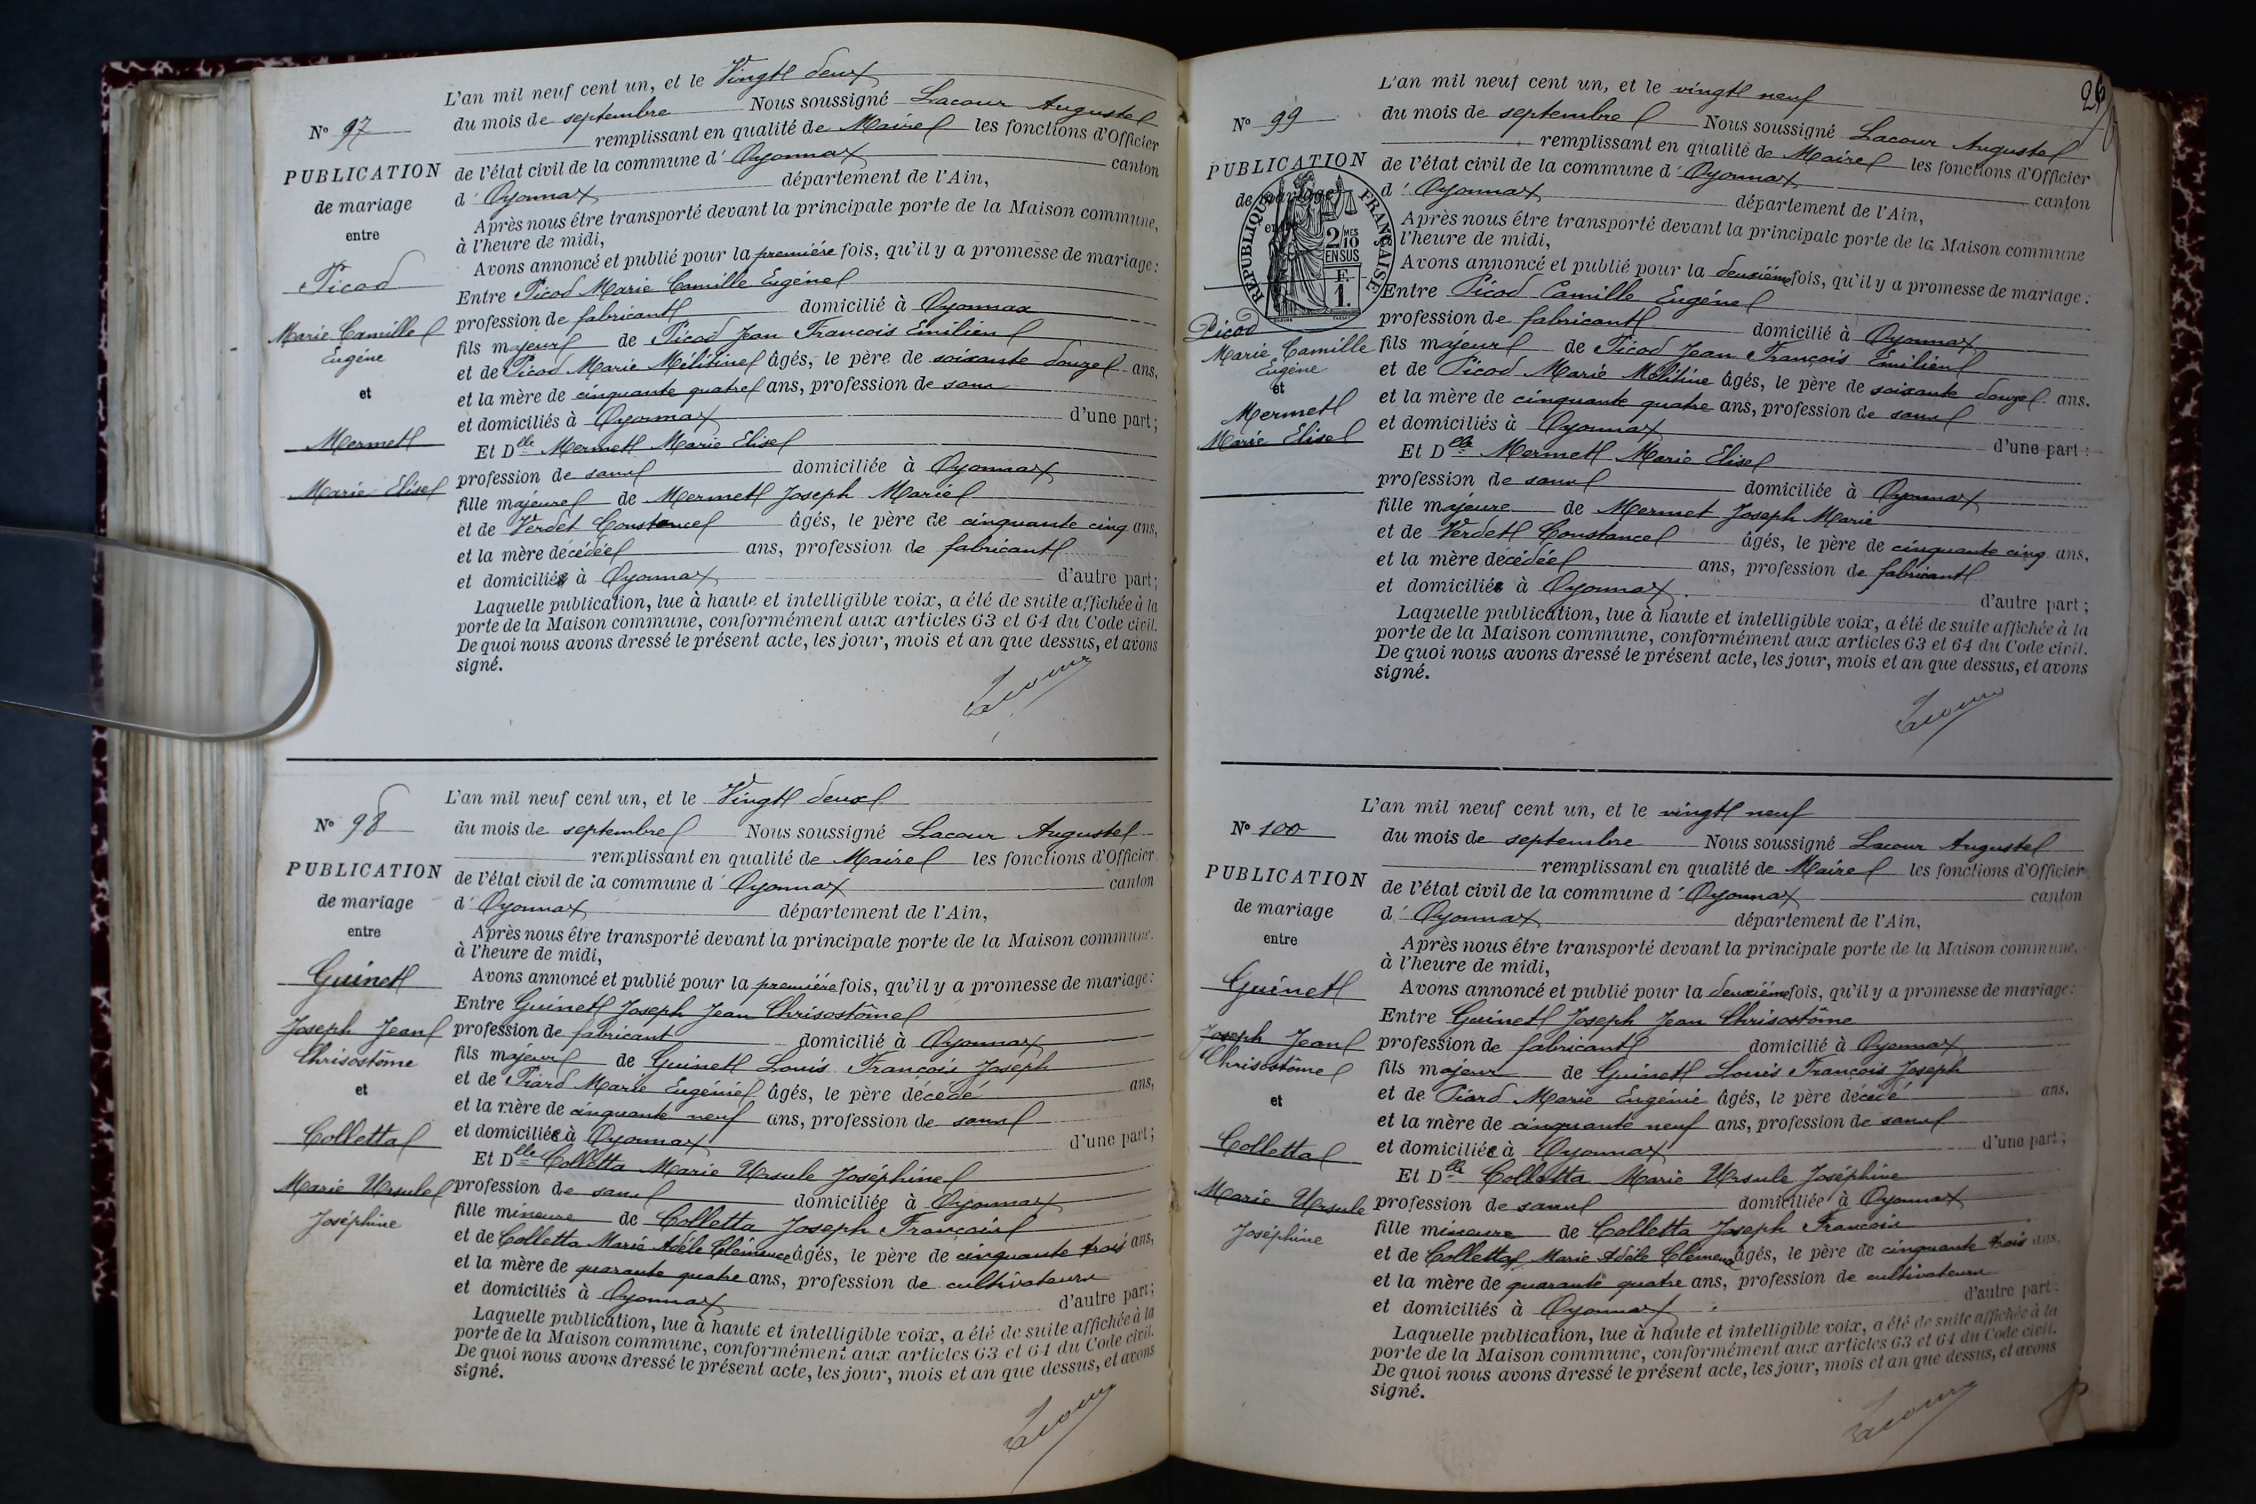 L'an mil neuf cent un, et le Vingt deux
N° 97
du mois de septembre Nous soussigné Lacour Auguste
remplissant en qualité de Maire les fonctions d'Officier
PUBLICATION
de mariage
entre
Picod
Marie Camille
Eugène
et
Mermet
Marie Elise
de l'état civil de la commune d'Oyonnax canton
d'Oyonnax département de l'Ain,
Après nous être transporté devant la principale porte de la Maison commune,
à l'heure de midi,
Avons annoncé et publié pour la première fois, qu'il y a promesse de mariage :
Entre Picod Marie Camille Eugène
profession de fabricant domicilié à Oyonnax
fils majeur de Picod Jean François Emilien
et de Picod Marie Mélitine âgés, le père de soixante douze ans,
et la mère de cinquante quatre ans, profession de sans
et domiciliés à Oyonnax d'une part ;
Et Dlle Mermet Marie Elise
profession de sans domiciliée à Oyonnax
fille majeure de Mermet Joseph Marie
et de Verdet Constance âgés, le père de cinquante cinq ans,
et la mère décédée ans, profession de fabricant
et domiciliés à Oyonnax d'autre part ;
Laquelle publication, lue à haute et intelligible voix, a été de suite affichée à la
porte de la Maison commune, conformément aux articles 63 et 64 du Code civil.
De quoi nous avons dressé le présent acte, les jour, mois et an que dessus, et avons
signé.
Lacour
L'an mil neuf cent un, et le Vingt deux
N° 98
du mois de septembre Nous soussigné Lacour Auguste
remplissant en qualité de Maire les fonctions d'Officier
PUBLICATION
de mariage
entre
Guinet
Joseph Jean
Chrisostôme
et
Colletta
Marie Ursule
Joséphine
de l'état civil de la commune d'Oyonnax canton
d'Oyonnax département de l'Ain,
Après nous être transporté devant la principale porte de la Maison commune.
à l'heure de midi,
Avons annoncé et publié pour la première fois, qu'il y a promesse de mariage :
Entre Guinet Joseph Jean Chrisostôme
profession de fabricant domicilié à Oyonnax
fils majeur de Guinet Louis François Joseph
et de Piard Marie Eugénie âgés, le père décédé ans,
et la mère de cinquante neuf ans, profession de sans
et domiciliée à Oyonnax d'une part ;
Et Dlle Colletta Marie Ursule Joséphine
profession de sans domiciliée à Oyonnax
fille mineure de Colletta Joseph François
et de Colletta Marie Adèle Clémence âgés, le père de cinquante trois ans,
et la mère de quarante quatre ans, profession de cultivateurs
et domiciliés à Oyonnax d'autre part ;
Laquelle publication, lue à haute et intelligible voix, a été de suite affichée à la
porte de la Maison commune, conformément aux articles 63 et 64 du Code civil.
De quoi nous avons dressé le présent acte, les jour, mois et an que dessus, et avons
signé.
Lacour
L'an mil neuf cent un, et le vingt neuf
N° 99
du mois de septembre Nous soussigné Lacour Auguste
remplissant en qualité de Maire les fonctions d'Officier
PUBLICATION
de mariage
RÉPUBLIQUE FRANÇAISE
2 MES
10
EN SUS
F.
1.
Picod
Marie Camille
Eugène
et
Mermet
Marie Elise
de l'état civil de la commune d'Oyonnax canton
d'Oyonnax département de l'Ain,
Après nous être transporté devant la principale porte de la Maison commune
l'heure de midi,
Avons annoncé et publié pour la deuxième fois, qu'il y a promesse de mariage :
Entre Picod Camille Eugène
profession de fabricant domicilié à Oyonnax
fils majeur de Picod Jean François Emilien
et de Picod Marie Mélitine âgés, le père de soixante douze ans.
et la mère de cinquante quatre ans, profession de sans
et domiciliés à Oyonnax d'une part :
Et Dlle Mermet Marie Elise
profession de sans domiciliée à Oyonnax
fille majeure de Mermet Joseph Marie
et de Verdet Constance âgés, le père de cinquante cinq ans,
et la mère décédée ans, profession de fabricant
et domiciliés à Oyonnax d'autre part ;
Laquelle publication, lue à haute et intelligible voix, a été de suite affichée à la
porte de la Maison commune, conformément aux articles 63 et 64 du Code civil.
De quoi nous avons dressé le présent acte, les jour, mois et an que dessus, et avons
signé.
Lacour
L'an mil neuf cent un, et le vingt neuf
N° 100
du mois de septembre Nous soussigné Lacour Auguste
remplissant en qualité de Maire les fonctions d'Officier
PUBLICATION
de mariage
entre
Guinet
Joseph Jean
Chrisostôme
et
Colletta
Marie Ursule
Joséphine
de l'état civil de la commune d'Oyonnax canton
d'Oyonnax département de l'Ain,
Après nous être transporté devant la principale porte de la Maison commune,
à l'heure de midi,
Avons annoncé et publié pour la deuxième fois, qu'il y a promesse de mariage :
Entre Guinet Joseph Jean Chrisostôme
profession de fabricant domicilié à Oyonnax
fils majeur de Guinet Louis François Joseph
et de Piard Marie Eugénie âgés, le père décédé ans,
et la mère de cinquante neuf ans, profession de sans
et domiciliée à Oyonnax d'une part ;
Et Dlle Colletta Marie Ursule Joséphine
profession de sans domiciliée à Oyonnax
fille mineure de Colletta Joseph François
et de Colletta Marie Adèle Clémence âgés, le père de cinquante trois ans,
et la mère de quarante quatre ans, profession de cultivateurs
et domiciliés à Oyonnax d'autre part.
Laquelle publication, lue à haute et intelligible voix, a été de suite affichée à la
porte de la Maison commune, conformément aux articles 63 et 64 du Code civil.
De quoi nous avons dressé le présent acte, les jour, mois et an que dessus, et avons
signé.
Lacour